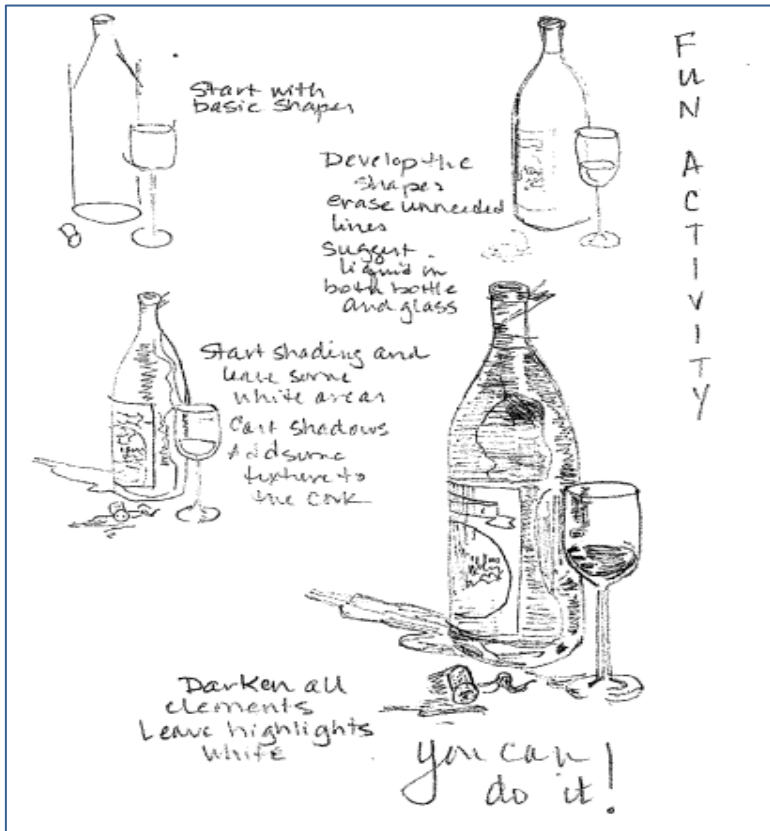 Start with
basic shapes
Develop the
shapes
erase unneeded
lines
suggest
liquid in
both bottle
and glass
Start shading and
leave some
white areas
Cast shadows
Add some
texture to
the cork
Darken all
elements
Leave highlights
white
you can
do it!
FUN ACTIVITY